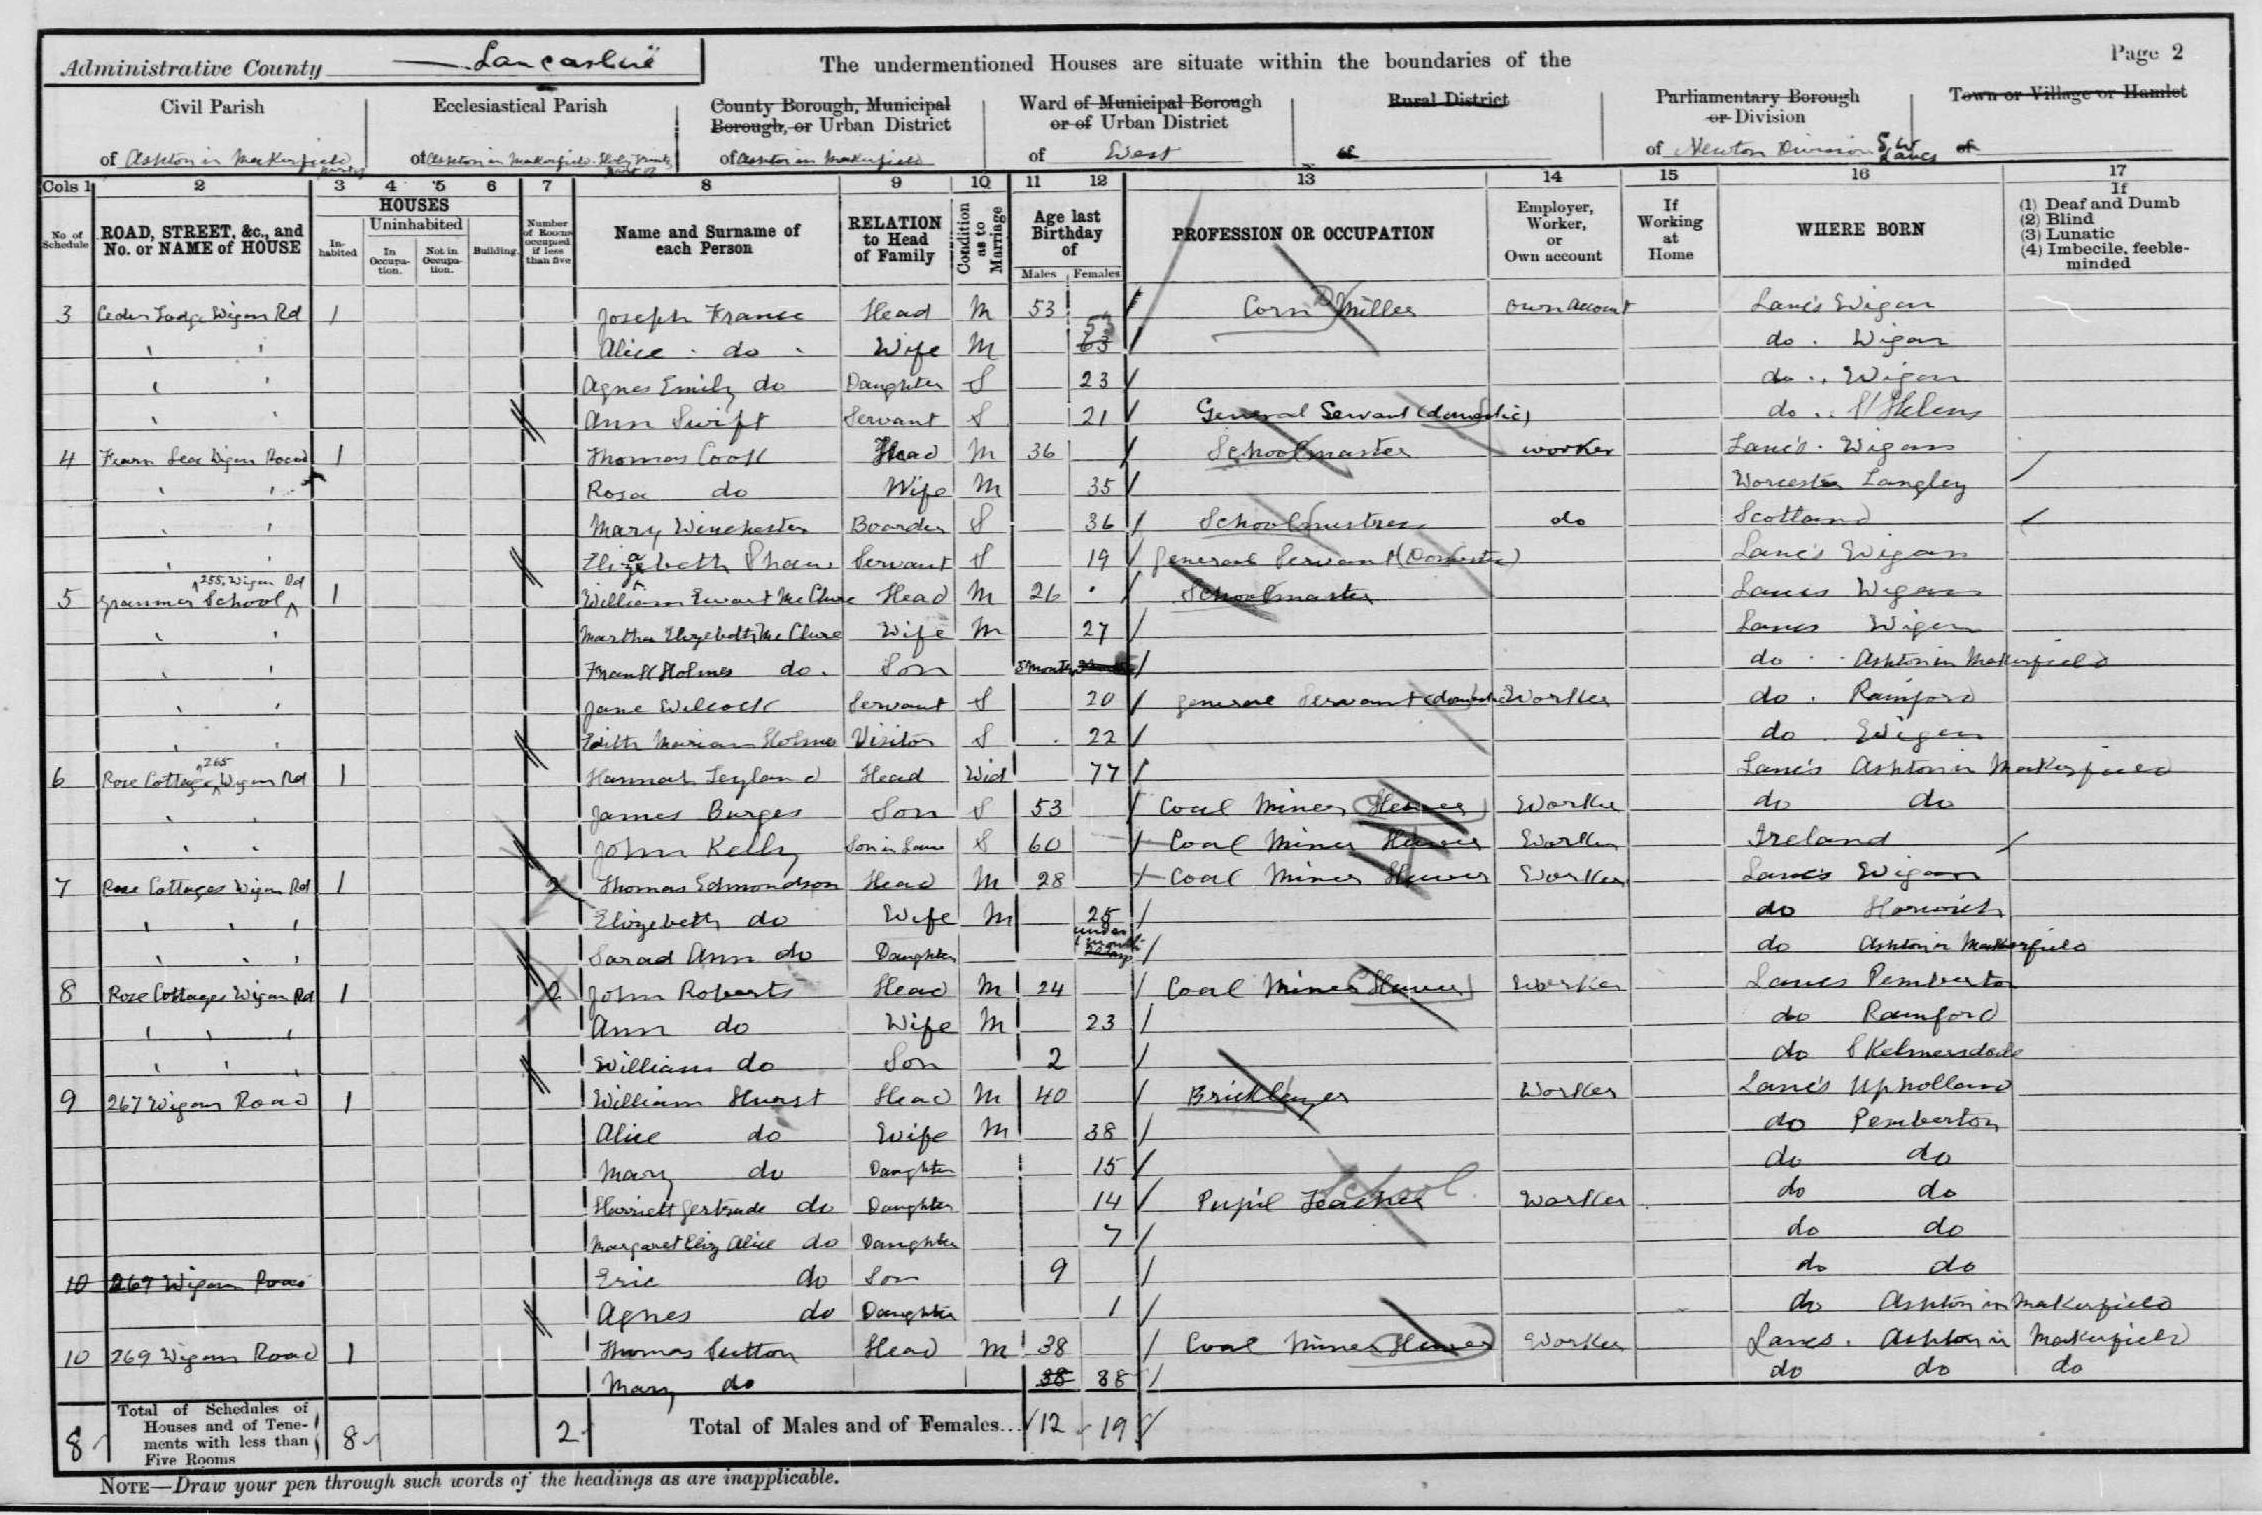 Administrative County Lancashire
The undermentioned Houses are situate within the boundaries of the
Page 2
Civil Parish
of Ashton in Makerfield
Ecclesiastical Parish
of Ashton in Makerfield Holy Trinity part of
County Borough, Municipal Borough, or Urban District
of Ashton in Makerfield
Ward of Municipal Borough or of Urban District
of West
Rural District
of
Parliamentary Borough or Division
of Newton Division S.W Lancs
Town or Village or Hamlet
of
Cols 1 2 3 4 5 6 7 8 9 10 11 12 13 14 15 16 17
No. of Schedule
ROAD, STREET, &c., and No. or NAME of HOUSE
HOUSES
In-habited
Uninhabited
In Occupa-tion.
Not in Occupa-tion.
Building.
Number of Rooms occupied if less than five
Name and Surname of each Person
RELATION to Head of Family
Condition as to Marriage
Age last Birthday of
Males Females
PROFESSION OR OCCUPATION
Employer, Worker, or Own account
If Working at Home
WHERE BORN
If
(1) Deaf and Dumb
(2) Blind
(3) Lunatic
(4) Imbecile, feeble-minded
3 Ceder Lodge Wigan Rd 1 Joseph France Head M 53 Corn Miller own account Lanc's Wigan
Alice do Wife M 53 63 do Wigan
Agnes Emily do Daughter S 23 do Wigan
Ann Swift Servant S 21 General Servant (domestic) do St Helens
4 Fearn Lea Wigan Road 1 Thomas Cook Head M 36 Schoolmaster worker Lanc's Wigan
Rosa do Wife M 35 Worcester Langley
Mary Winchester Boarder S 36 Schoolmistress do Scotland
Elizabeth Shaw Servant S 19 General Servant (Domestic) Lanc's Wigan
5 Grammer School 255 Wigan Rd 1 William Ewart McClure Head M 26 Schoolmaster Lancs Wigan
Martha Elizebeth McClure Wife M 27 Lancs Wigan
Frank Holmes do Son 5 months do Ashton in Makerfield
Jane Wilcock Servant S 20 general Servant (domestic) Worker do Rainford
Edith Marian Holmes Visitor S 22 do Wigan
6 Rose Cottage 265 Wigan Rd 1 Hannah Leyland Head Wid 77 Lanc's Ashton in Makerfield
James Burges Son S 53 Coal Miner Hewer Worker do do
John Kelly Son in Law S 60 Coal Miner Hewer Worker Ireland
7 Rose Cottages Wigan Rd 1 2 Thomas Edmondson Head M 28 Coal Miner Hewer Worker Lanc's Wigan
Elizebeth do Wife M 25 do Horwich
Sarad Ann do Daughter under 1 month do Ashton in Makerfield
8 Rose Cottages Wigan Rd 1 2 John Roberts Head M 24 Coal Miner Hewer Worker Lancs Pemberton
Ann do Wife M 23 do Rainford
William do Son 2 do Skelmersdale
9 267 Wigan Road 1 William Hurst Head M 40 Bricklayer Worker Lanc's Upholland
Alice do Wife M 38 do Pemberton
Mary do Daughter 15 do do
Harriett Gertrude do Daughter 14 Pupil Teacher School. Worker do do
Margaret Eliz Alice do Daughter 7 do do
10 269 Wigan Road Eric do Son 9 do do
Agnes do Daughter 1 do Ashton in Makerfield
10 269 Wigan Road 1 Thomas Sutton Head M 38 Coal Miner Hewer Worker Lancs. Ashton in Makerfield
Mary do 38 88 do do do
8 Total of Schedules of Houses and of Tene-ments with less than Five Rooms 8 2 Total of Males and of Females... 12 19
NOTE—Draw your pen through such words of the headings as are inapplicable.